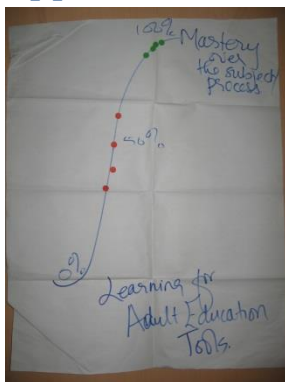 100%
Mastery
over
the subject
process
50%
0%
Learning for
Adult Education
Tools.